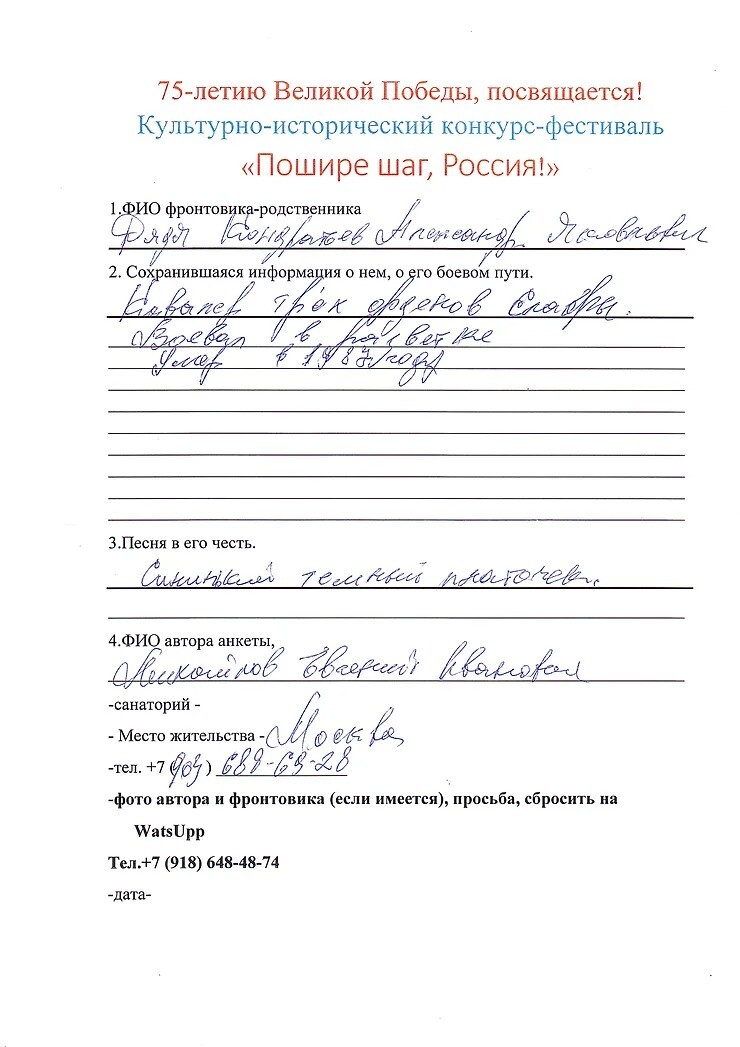 75-летию Великой Победы, посвящается!
Культурно-исторический конкурс-фестиваль
«Пошире шаг, Россия!»
1.ФИО фронтовика-родственника
Дядя Кондратьев Александр Яковлевич
2. Сохранившаяся информация о нем, о его боевом пути.
Кавалер трёх орденов Славы.
Воевал в разведке
Умер в 1987 году
3.Песня в его честь.
Синенький темный платочек.
4.ФИО автора анкеты,
Евгений Иванович
-санаторий -
- Место жительства - Москва
-тел. +7 (903) 689-69-28
-фото автора и фронтовика (если имеется), просьба, сбросить на
WatsUpp
Тел.+7 (918) 648-48-74
-дата-